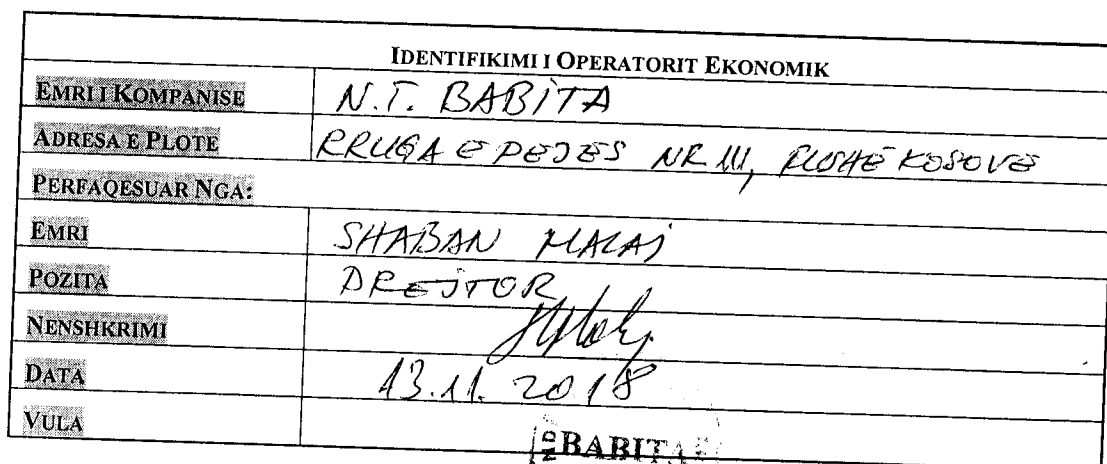 IDENTIFIKIMI I OPERATORIT EKONOMIK
EMRI I KOMPANISE N.T. BABITA
ADRESA E PLOTE RRUGA E PEJES NR 111, FUSHË KOSOVË
PERFAQESUAR NGA:
EMRI SHABAN MALAJ
POZITA DREJTOR
NENSHKRIMI
DATA 13.11.2018
VULA BABITA